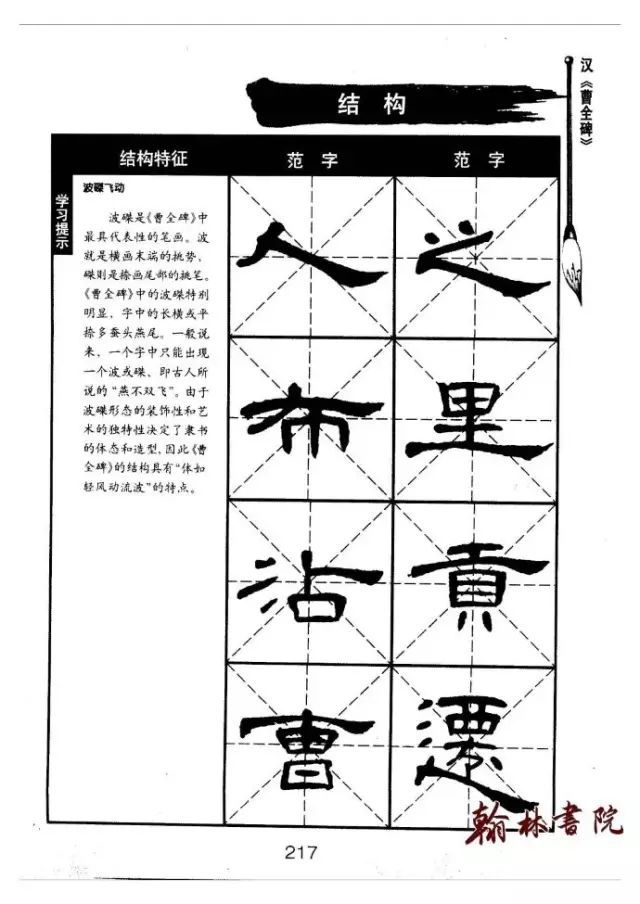 汉《曹全碑》
结 构
结构特征 范 字 范 字
学习提示
波磔飞动
波磔是《曹全碑》中
最具代表性的笔画。波
就是横画末端的挑势,
磔则是捺画尾部的挑笔。
《曹全碑》中的波磔特别
明显,字中的长横或平
捺多蚕头燕尾。一般说
来,一个字中只能出现
一个波或磔,即古人所
说的“燕不双飞”。由于
波磔形态的装饰性和艺
术的独特性决定了隶书
的体态和造型,因此《曹
全碑》的结构具有“体如
轻风动流波”的特点。
人 之
布 里
沾 貢
曹 遷
翰林書院
217